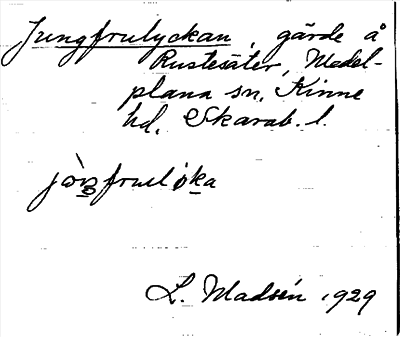 Jungfrulyckan, gärde å
Rustesäter, Medel-
plana sn, Kinne
hd, Skarab. l.
jòŋfruløka
L. Madsén 1929